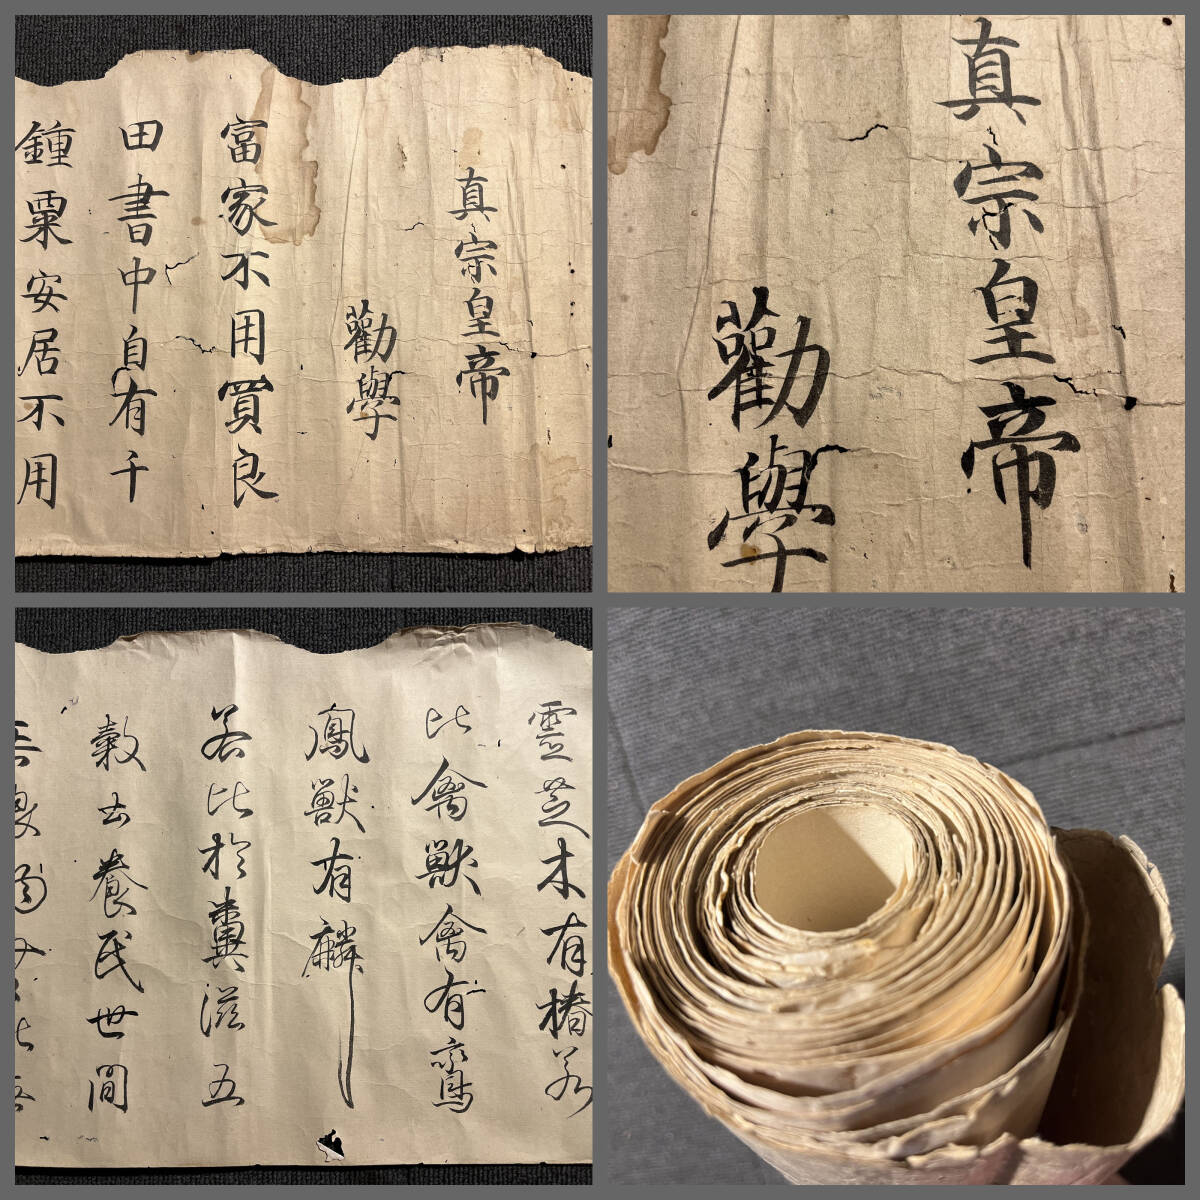 真宗皇帝
勸學
富家不用買良
田書中自有千
鍾粟安居不用
真宗皇帝
勸學
靈芝木有椿若
比禽獸禽有鸞
鳳獸有麟
若比於糞滋五
穀土養民世間